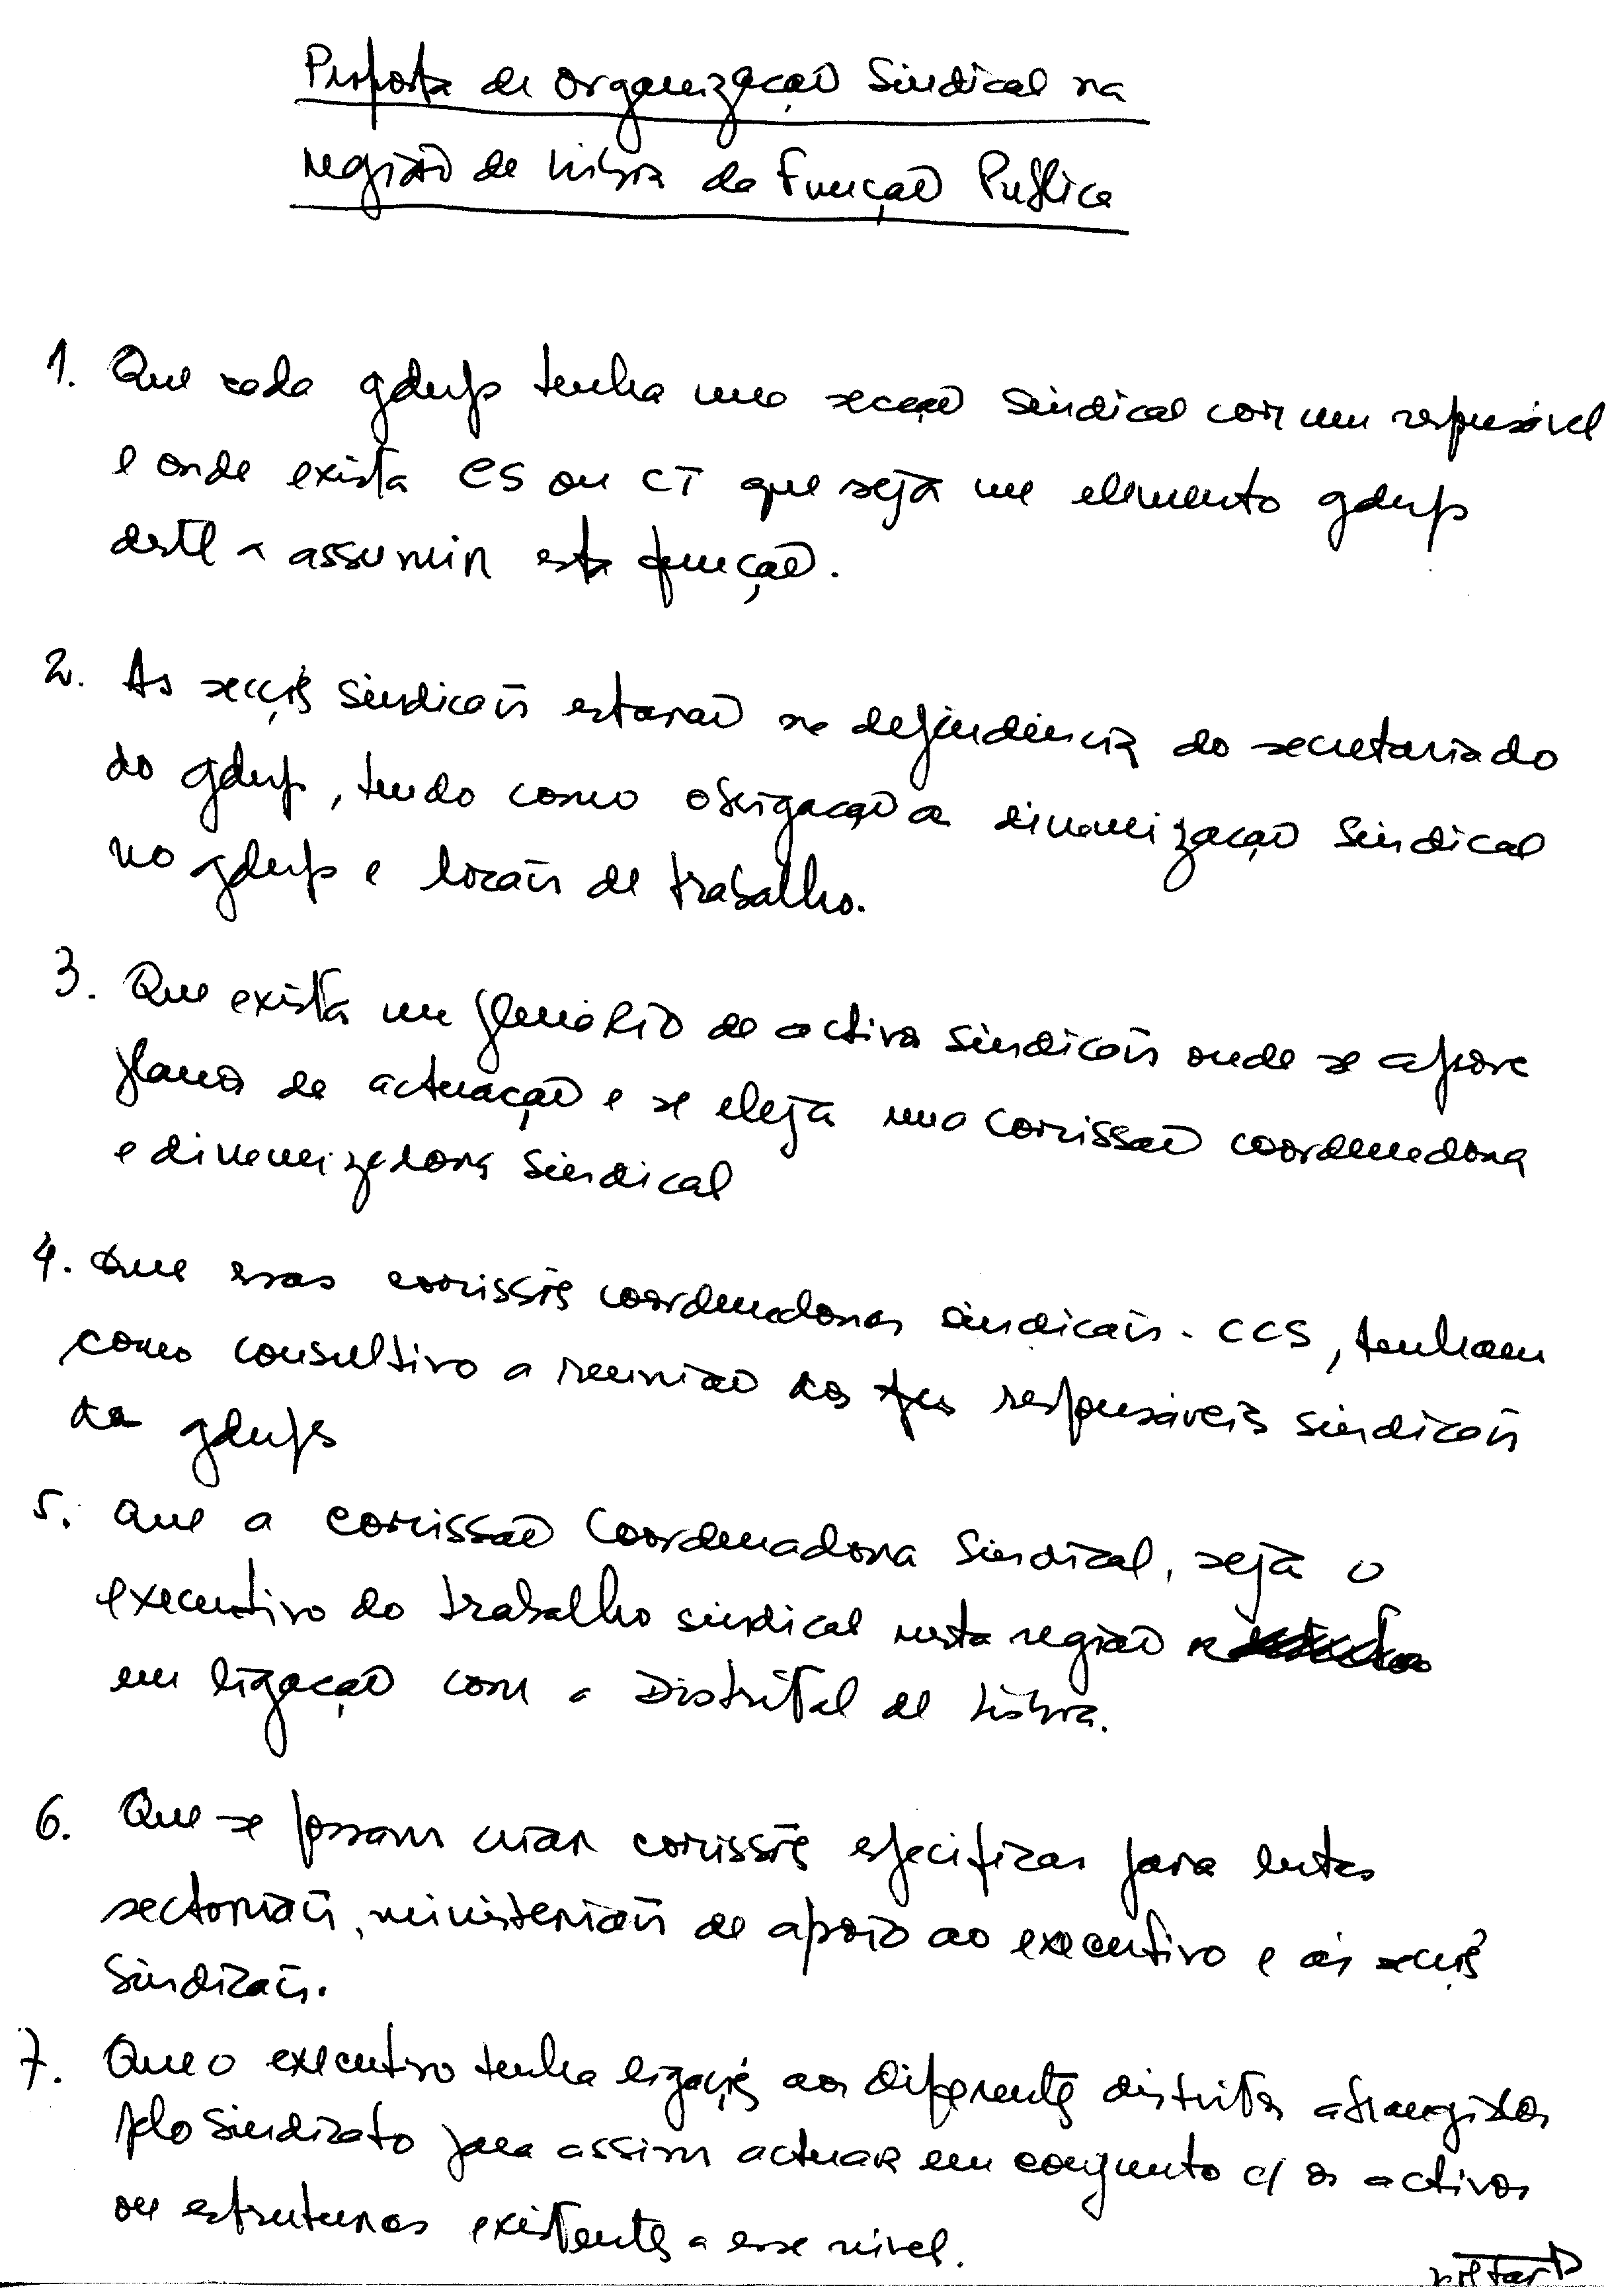 Proposta de organização Sindical na
região de Lisboa da Função Publica
1. Que cada gdup tenha uma secção Sindical com um responsável
e onde exista CS ou CT que seja um elemento gdup
deste a assumir esta função.
2. As secções Sindicais estarão na dependência do secretariado
do gdup, tendo como obrigação a dinamização Sindical
no gdup e locais de trabalho.
3. Que exista um plenáRio de activos Sindicais onde se aprove
planos de actuação e se eleja uma comissão coordenadora
e dinamizadora Sindical
4. Que essas comissões coordenadoras sindicais - CCS, tenham
como consultivo a reunião dos responsáveis sindicais
de gdups
5. Que a comissão Coordenadora Sindical, seja o
executivo do trabalho sindical nesta região
em ligação com a Distrital de Lisboa.
6. Que se possam criar comissões especificas para lutas
sectoriais, ministeriais de apoio ao executivo e ás secções
Sindicais.
7. Que o executivo tenha ligações aos diferentes distritos abrangidos
pelo Sindicato para assim actuar em conjunto c/ os activos
ou estruturas existentes a esse nivel.
voltar